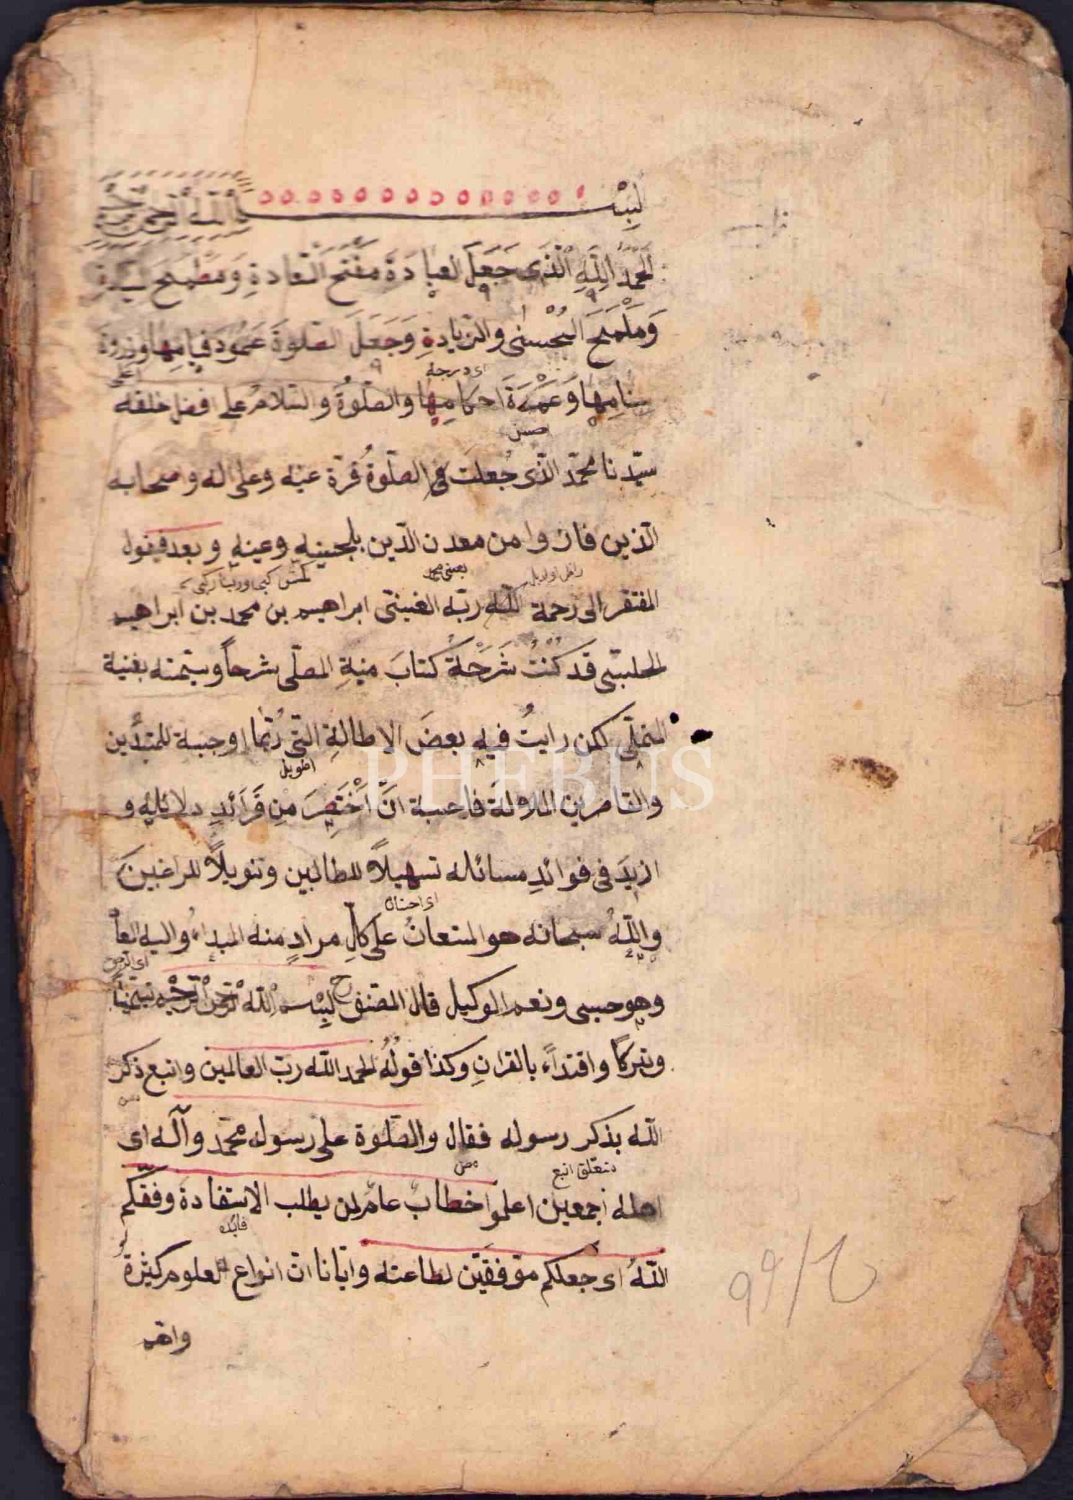 بسم الله الرحمن الرحيم
الحمد لله الذى جعل العبادة مفتح السعادة ومطمح السيادة
وملمح الحسنى والزيادة وجعل الصلوة عمود قيامها وذروة
اى درجة اعلى
سنامها وعمدة احكامها والصلوة والسلام على افضل خلقه
سيدنا محمد الذى جعلت فى الصلوة قرة عينه وعلى اله وصحابه
الذين فازوا من معدن الدين بلجينه وعينه وبعد فيقول
المفتقر الى رحمة الله ربه الغينتى ابراهيم بن محمد بن ابراهيم
الحلبى قد كنت شرحة كتاب منية المصلى شرحا وسيمته بغنية
المتملى لكن رايت فيه بعض الاطالة التى ربما اوجبة للمبتدين
اطويل
والقاصرين الملالة فاحببة ان اختصر من فرائد دلائله و
ازيد فى فوائد مسائله تسهيلا للطالبين وتنويلا للراغبين
اى احسان
والله سبحانه هو المتعان على كل مراد منه المبداء واليه المعا
وهو حسبى ونعم الوكيل قال المصنف رح بسم الله الرحمن الرحيم تيمنا
وتبركا واقتداء بالقران وكذا قوله الحمد لله رب العالمين واتبع ذكر
الله بذكر رسوله فقال والصلوة على رسوله محمد وآله اى
متعلق اتبع
اهله اجمعين اعلموا خطاب عام لمن يطلب الاستفادة وفقكم
فائده
الله اى جعلكم موفقين لطاعته وايانا ان انواع العلوم كثيرة
واهم
99/2
PHEBUS